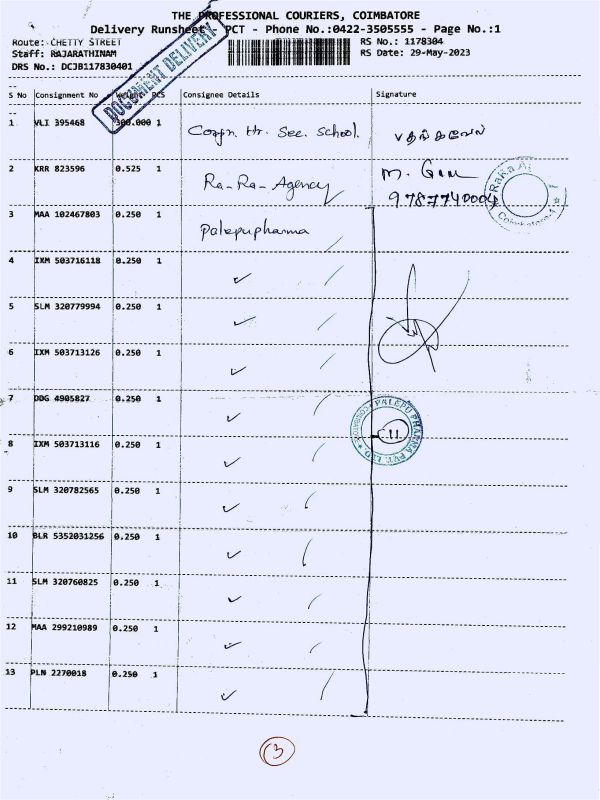 THE PROFESSIONAL COURIERS, COIMBATORE
Delivery Runsheet PCT - Phone No.:0422-3505555 - Page No.:1
Route: CHETTY STREET RS No.: 1178304
Staff: RAJARATHINAM RS Date: 29-May-2023
DRS No.: DCJB117830401
DOCUMENT DELIVERY
S No Consignment No Weight PCS Consignee Details Signature
1 VLI 395468 300.000 1 Corpn. Hr. Sec. School.
2 KRR 823596 0.525 1 Ra-Ra-Agency
9787740004
3 MAA 102467803 0.250 1 Palepupharma
4 IXM 503716118 0.250 1 ✓
5 SLM 320779994 0.250 1 ✓
6 IXM 503713126 0.250 1 ✓
7 DDG 4905827 0.250 1 ✓
PALEPU PHARMA PVT. LTD
8 IXM 503713116 0.250 1 ✓
9 SLM 320782565 0.250 1 ✓
10 BLR 5352031256 0.250 1 ✓
11 SLM 320760825 0.250 1 ✓
12 MAA 299210989 0.250 1 ✓
13 PLN 2270018 0.250 1 ✓
3